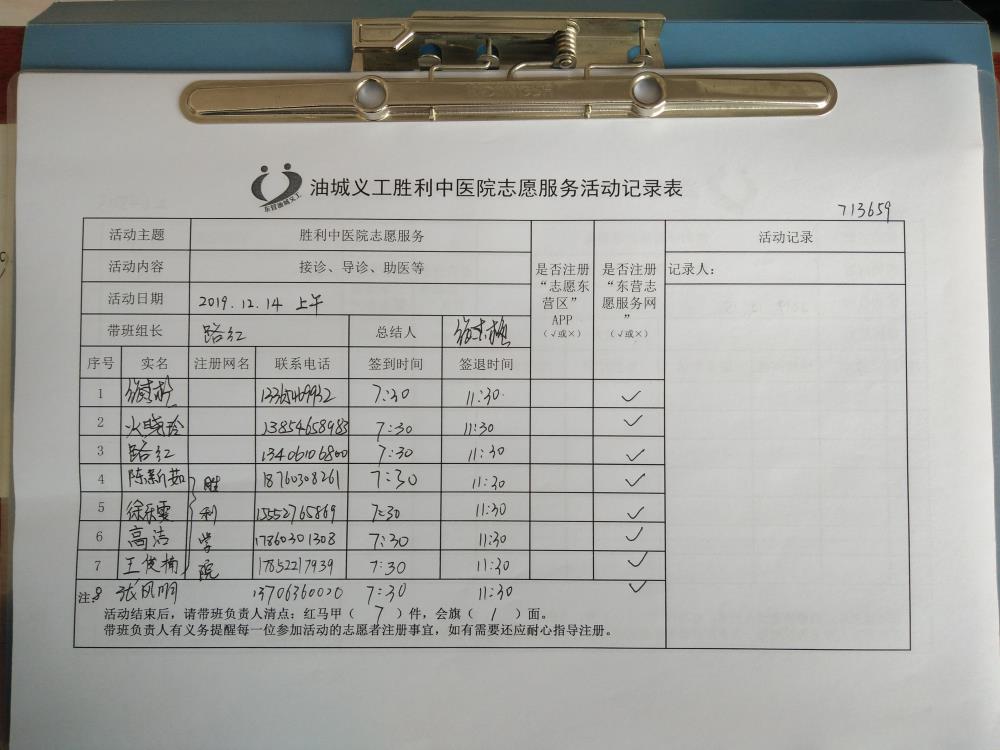 油城义工胜利中医院志愿服务活动记录表
东营油城义工
713659
活动主题 胜利中医院志愿服务 是否注册“志愿东营区”APP（√或×） 是否注册“东营志愿服务网”（√或×） 活动记录
活动内容 接诊、导诊、助医等 记录人：
活动日期 2019.12.14 上午
带班组长 路红 总结人
序号 实名 注册网名 联系电话 签到时间 签退时间
1 7:30 11:30 ✓
2 火晓玲 13854658983 7:30 11:30 ✓
3 路红 13406106800 7:30 11:30 ✓
4 陈新茹 胜利学院 18760308261 7:30 11:30 ✓
5 徐乐雯 15552765869 7:30 11:30 ✓
6 高洁 17860301308 7:30 11:30 ✓
7 王俊楠 17852217939 7:30 11:30 ✓
注： 8 张凤明 13706360020 7:30 11:30 ✓
活动结束后，请带班负责人清点：红马甲（ 7 ）件，会旗（ 1 ）面。
带班负责人有义务提醒每一位参加活动的志愿者注册事宜，如有需要还应耐心指导注册。